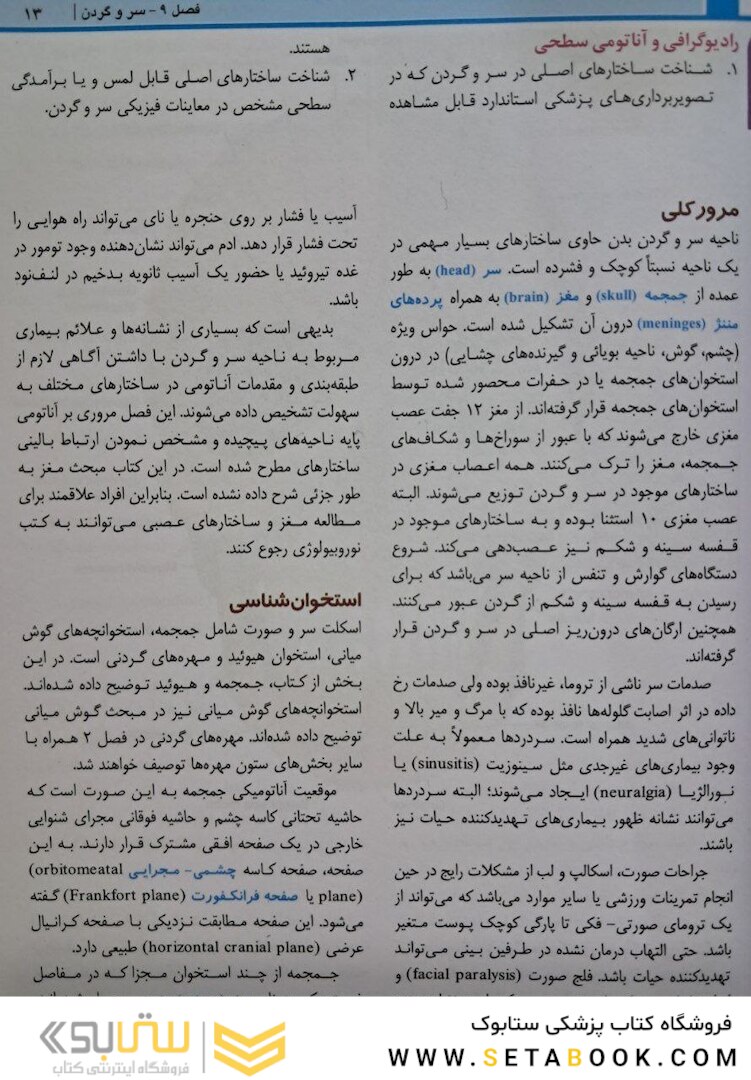 فصل ۹ - سر و گردن | ۱۳
رادیوگرافی و آناتومی سطحی
۱. شناخت ساختارهای اصلی در سر و گردن که در
تصویربرداری‌های پزشکی استاندارد قابل مشاهده
هستند.
۲. شناخت ساختارهای اصلی قابل لمس و یا برآمدگی
سطحی مشخص در معاینات فیزیکی سر و گردن.
مرور کلی
ناحیه سر و گردن بدن حاوی ساختارهای بسیار مهمی در
یک ناحیه نسبتاً کوچک و فشرده است. سر (head) به طور
عمده از جمجمه (skull) و مغز (brain) به همراه پرده‌های
مننژ (meninges) درون آن تشکیل شده است. حواس ویژه
(چشم، گوش، ناحیه بویائی و گیرنده‌های چشایی) در درون
استخوان‌های جمجمه یا در حفرات محصور شده توسط
استخوان‌های جمجمه قرار گرفته‌اند. از مغز ۱۲ جفت عصب
مغزی خارج می‌شوند که با عبور از سوراخ‌ها و شکاف‌های
جمجمه، مغز را ترک می‌کنند. همه اعصاب مغزی در
ساختارهای موجود در سر و گردن توزیع می‌شوند. البته
عصب مغزی ۱۰ استثنا بوده و به ساختارهای موجود در
قفسه سینه و شکم نیز عصب‌دهی می‌کند. شروع
دستگاه‌های گوارش و تنفس از ناحیه سر می‌باشد که برای
رسیدن به قفسه سینه و شکم از گردن عبور می‌کنند.
همچنین ارگان‌های درون‌ریز اصلی در سر و گردن قرار
گرفته‌اند.
صدمات سر ناشی از تروما، غیرنافذ بوده ولی صدمات رخ
داده در اثر اصابت گلوله‌ها نافذ بوده که با مرگ و میر بالا و
ناتوانی‌های شدید همراه است. سردردها معمولاً به علت
وجود بیماری‌های غیرجدی مثل سینوزیت (sinusitis) یا
نورالژیا (neuralgia) ایجاد می‌شوند؛ البته سردردها
می‌توانند نشانه ظهور بیماری‌های تهدیدکننده حیات نیز
باشند.
جراحات صورت، اسکالپ و لب از مشکلات رایج در حین
انجام تمرینات ورزشی یا سایر موارد می‌باشد که می‌تواند از
یک ترومای صورتی- فکی تا پارگی کوچک پوست متغیر
باشد. حتی التهاب درمان نشده در طرفین بینی می‌تواند
تهدیدکننده حیات باشد. فلج صورت (facial paralysis) و
آسیب یا فشار بر روی حنجره یا نای می‌تواند راه هوایی را
تحت فشار قرار دهد. ادم می‌تواند نشان‌دهنده وجود تومور در
غده تیروئید یا حضور یک آسیب ثانویه بدخیم در لنف‌نود
باشد.
بدیهی است که بسیاری از نشانه‌ها و علائم بیماری
مربوط به ناحیه سر و گردن با داشتن آگاهی لازم از
طبقه‌بندی و مقدمات آناتومی در ساختارهای مختلف به
سهولت تشخیص داده می‌شوند. این فصل مروری بر آناتومی
پایه ناحیه‌های پیچیده و مشخص نمودن ارتباط بالینی
ساختارهای مطرح شده است. در این کتاب مبحث مغز به
طور جزئی شرح داده نشده است. بنابراین افراد علاقمند برای
مطالعه مغز و ساختارهای عصبی می‌توانند به کتب
نوروبیولوژی رجوع کنند.
استخوان‌شناسی
اسکلت سر و صورت شامل جمجمه، استخوانچه‌های گوش
میانی، استخوان هیوئید و مهره‌های گردنی است. در این
بخش از کتاب، جمجمه و هیوئید توضیح داده شده‌اند.
استخوانچه‌های گوش میانی نیز در مبحث گوش میانی
توضیح داده شده‌اند. مهره‌های گردنی در فصل ۲ همراه با
سایر بخش‌های ستون مهره‌ها توصیف خواهند شد.
موقعیت آناتومیکی جمجمه به این صورت است که
حاشیه تحتانی کاسه چشم و حاشیه فوقانی مجرای شنوایی
خارجی در یک صفحه افقی مشترک قرار دارند. به این
صفحه، صفحه کاسه چشمی- مجرایی (orbitomeatal
plane) یا صفحه فرانکفورت (Frankfort plane) گفته
می‌شود. این صفحه مطابقت نزدیکی با صفحه کرانیال
عرضی (horizontal cranial plane) طبیعی دارد.
جمجمه از چند استخوان مجزا که در مفاصل
فروشگاه کتاب پزشکی ستابوک
WWW.SETABOOK.COM
ستابوک
فروشگاه اینترنتی کتاب